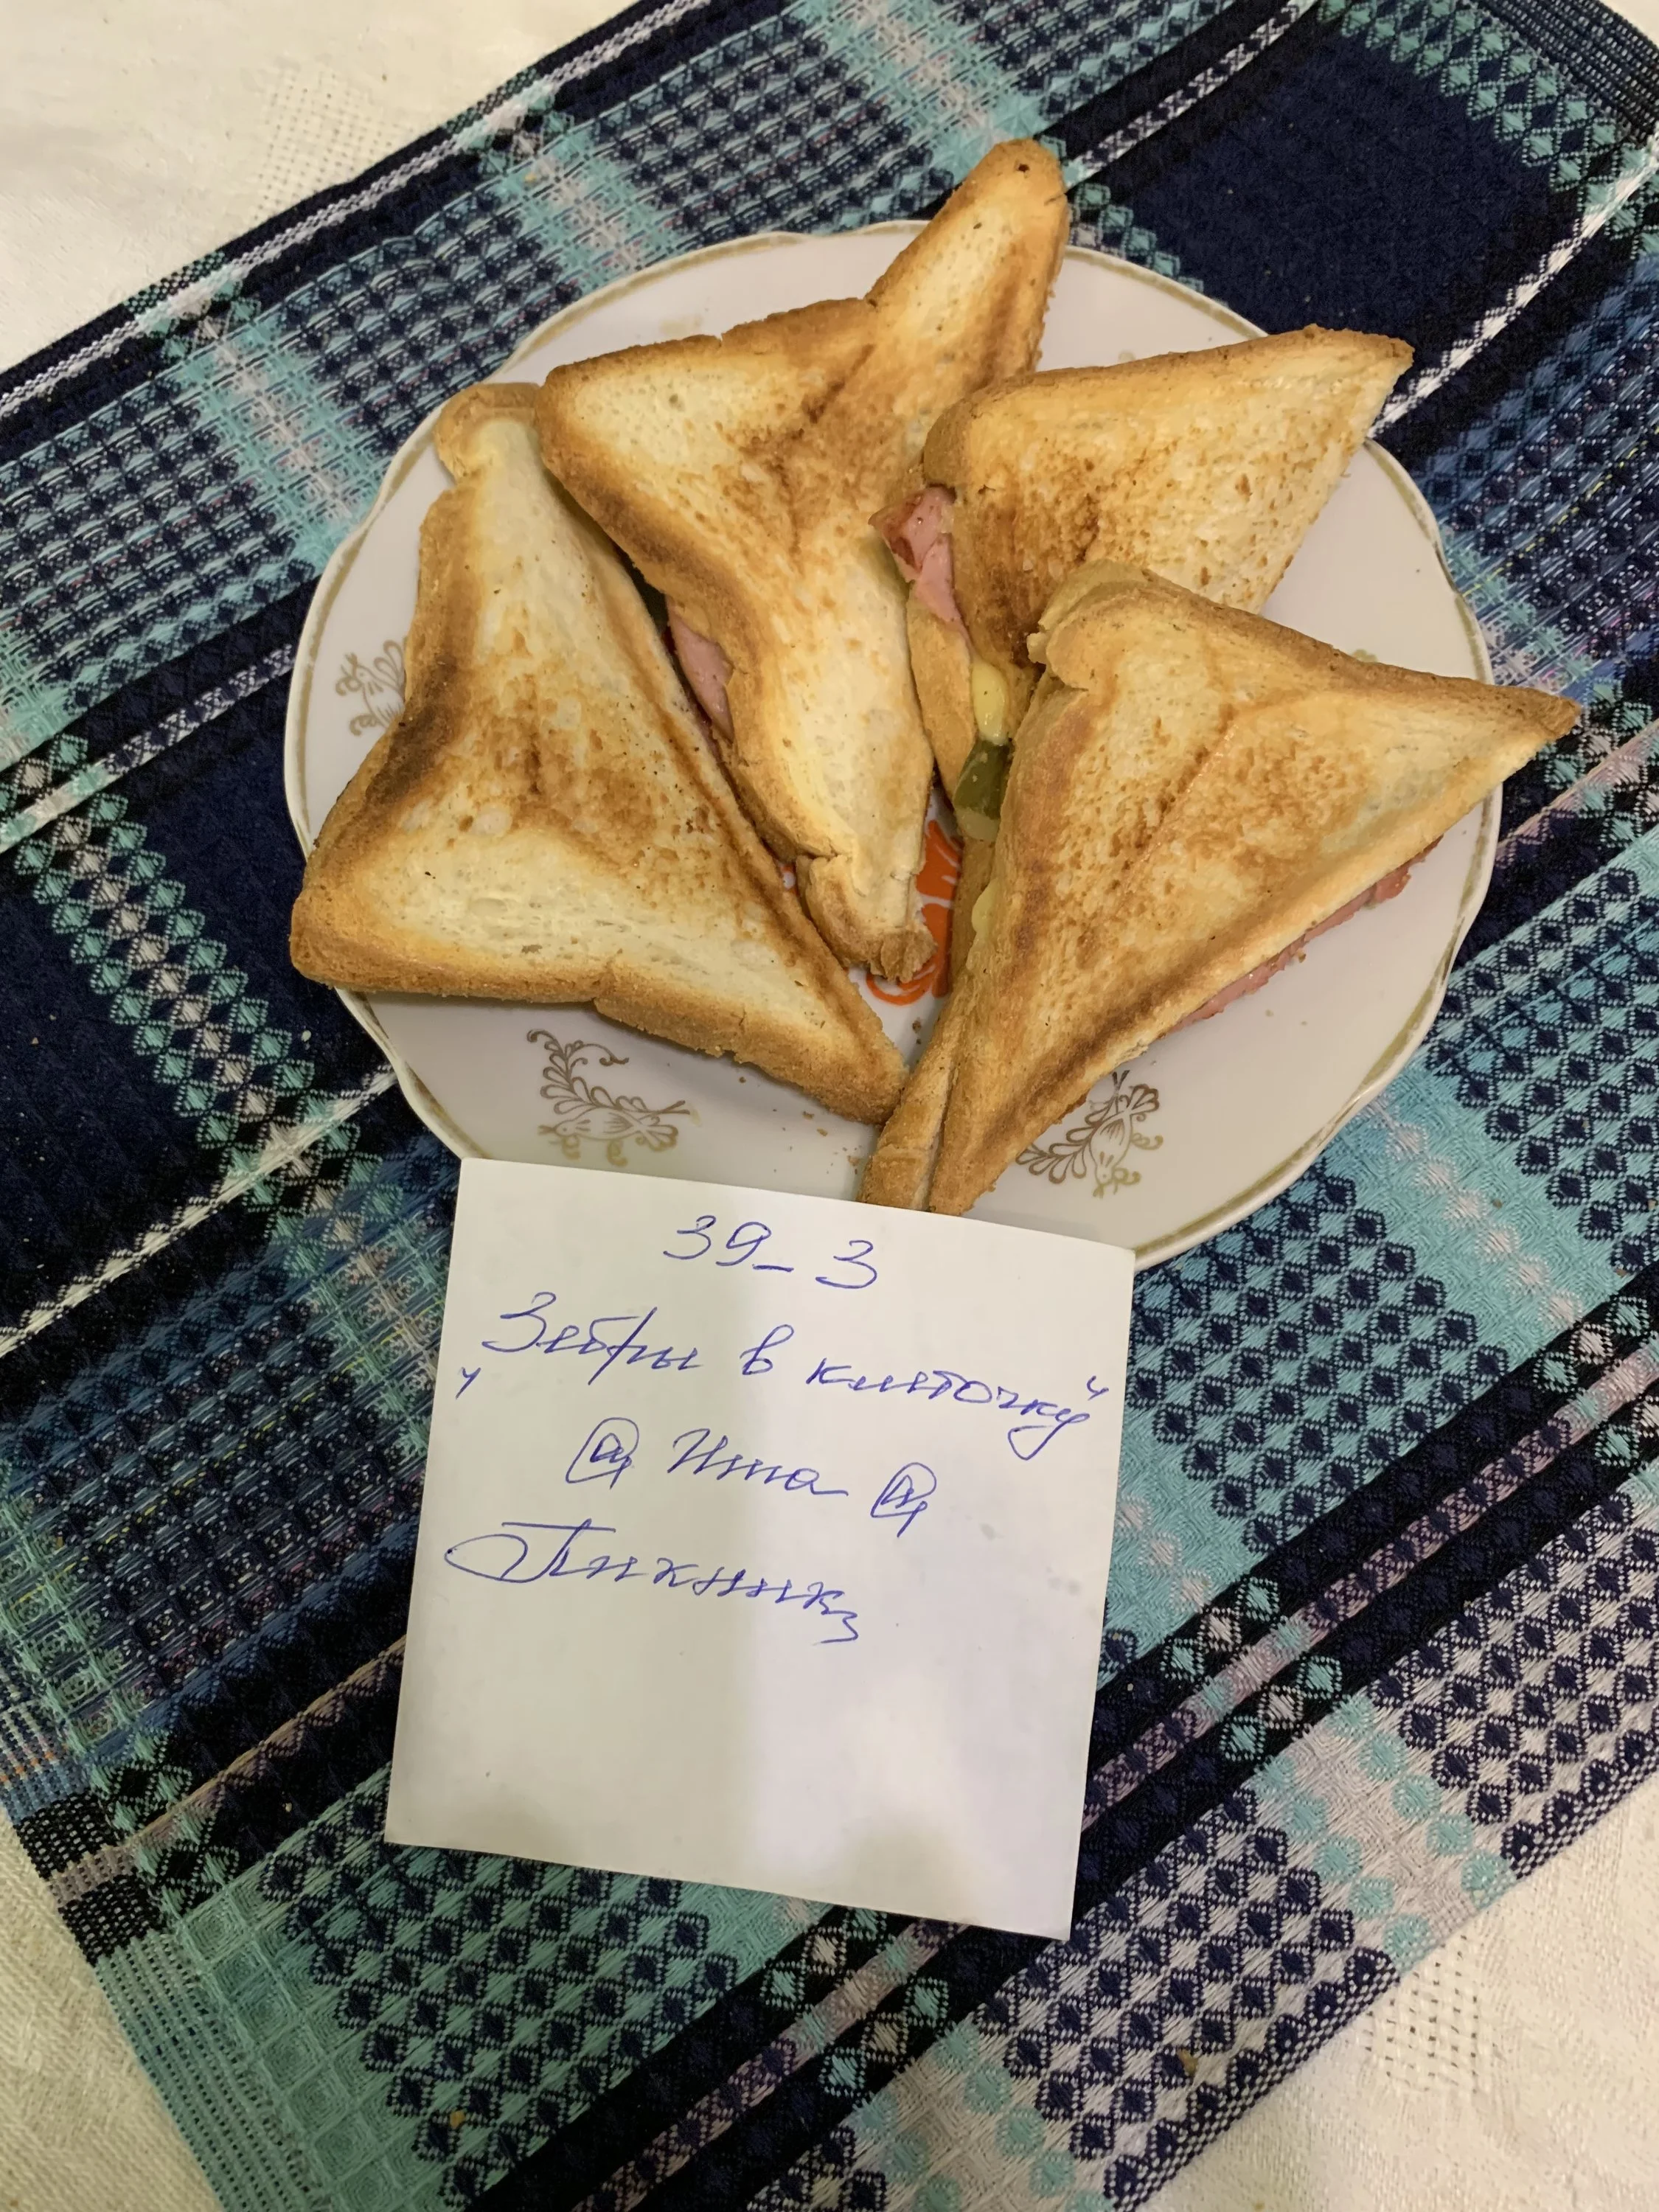 39_3
"Зебры в клеточку"
@ Инна @
Пикник